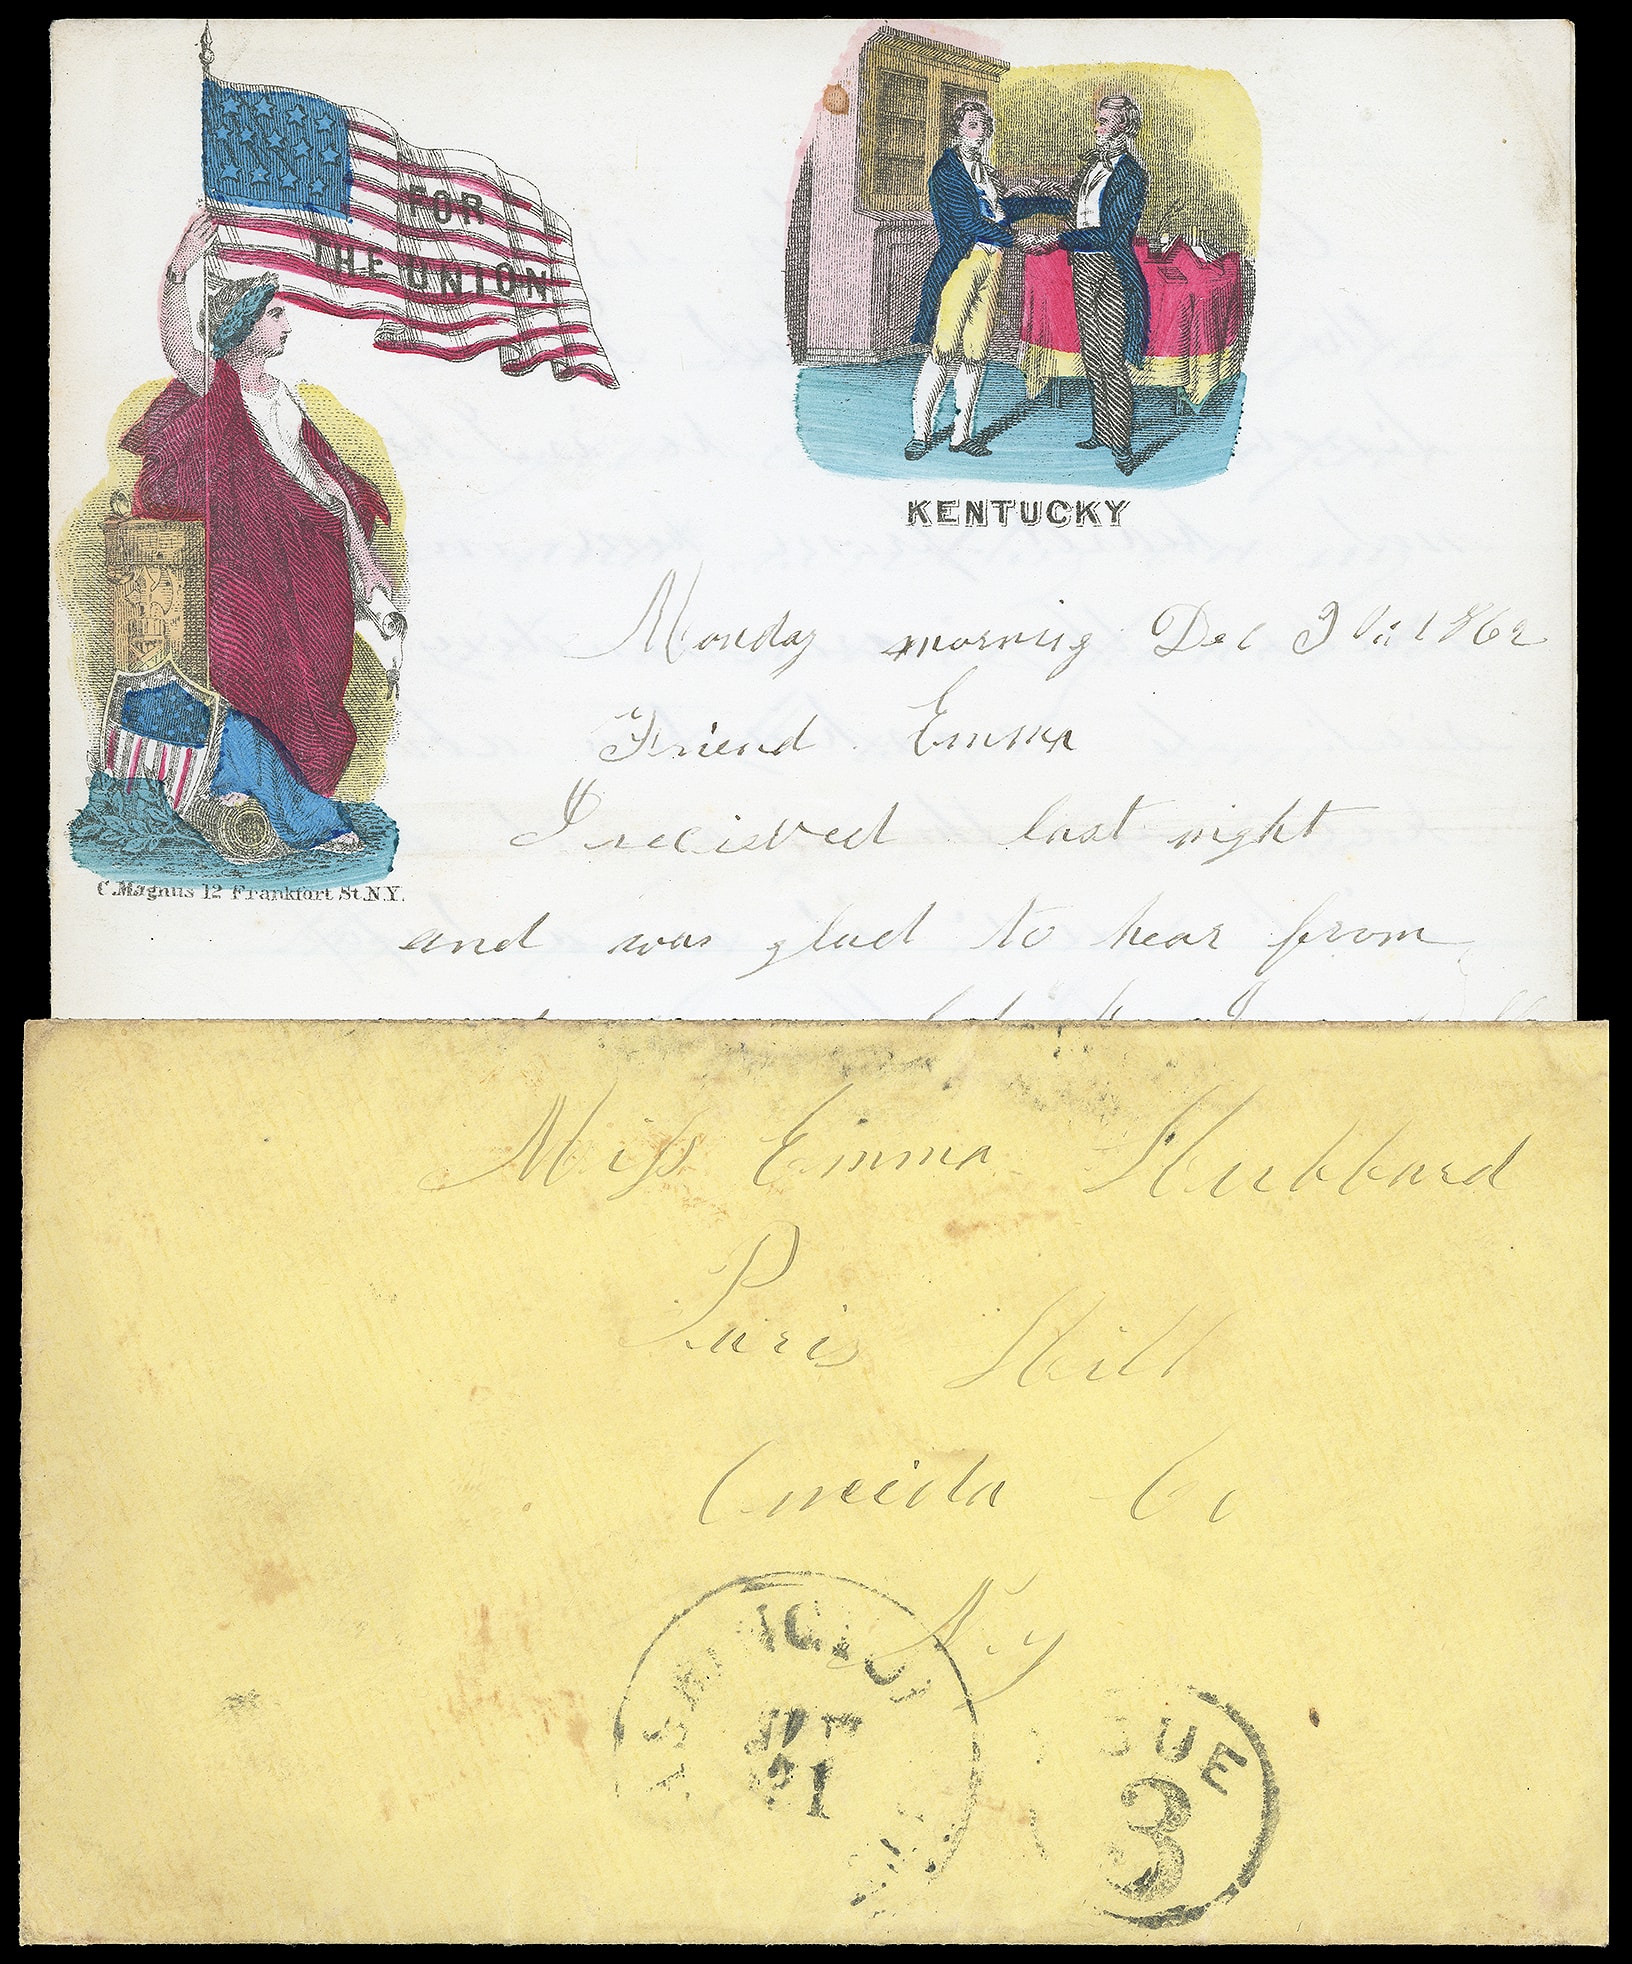 FOR
THE UNION
KENTUCKY
C. Magnus 12 Frankfort St. N.Y.
Monday morning Dec 1862
Friend Emma
I recieved last night
and was glad to hear from
Miss Emma Hubbard
Paris Hill
Oneida Co
N.y
DUE
3